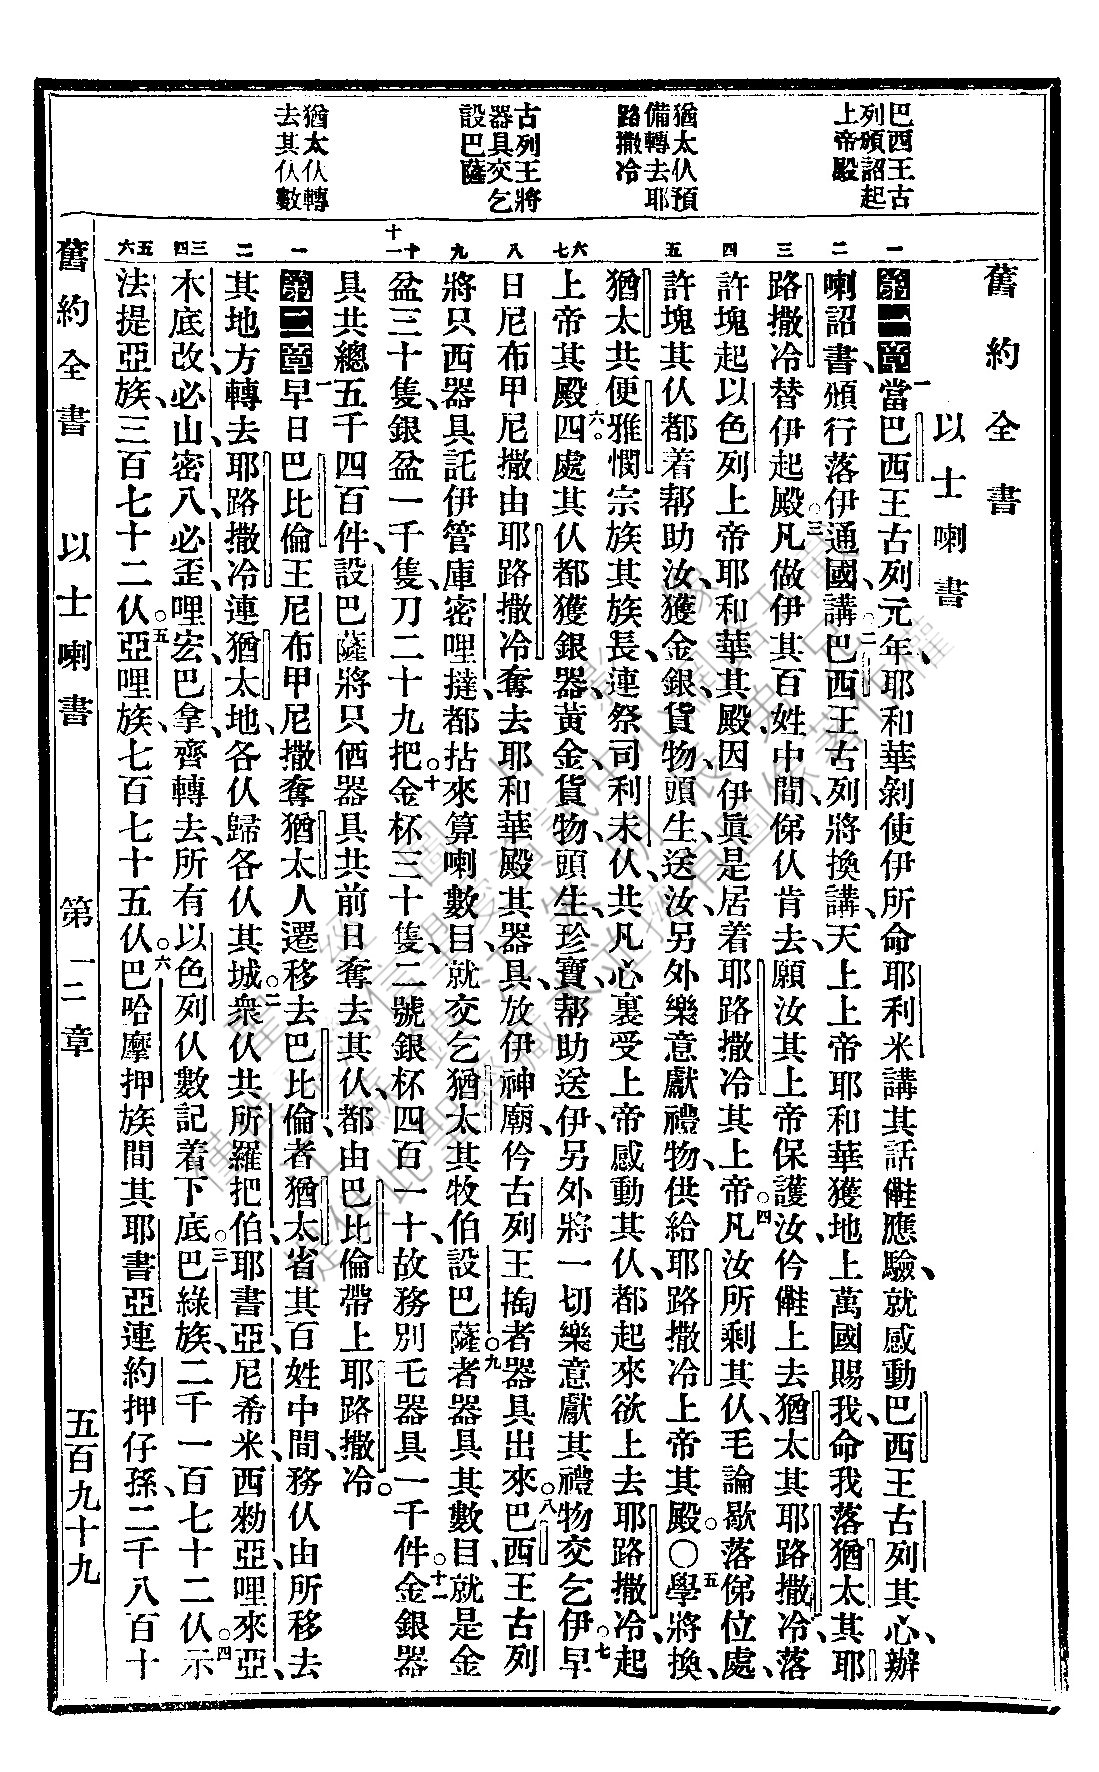 巴西王古
列頒詔起
上帝殿
猶太仈預
備轉去耶
路撒冷
古列王將
器具交乞
設巴薩
猶太仈轉
去其仈數
一
二
三
四
五
六七
八
九
十十一
一
二
三四
五六
舊約全書
以士喇書
第一章 一當巴西王古列元年、耶和華剝使伊所命耶利米講其話、應驗、就感動巴西王古列其心、辦
喇詔書、頒行落伊通國講、二巴西王古列將換講、天上上帝耶和華獲地上萬國賜我、命我落猶太其耶
路撒冷替伊起殿。三凡做伊其百姓中間、俤仈肯去、願汝其上帝保護汝、仱上去猶太其耶路撒冷、落
許塊起以色列上帝耶和華其殿、因伊眞是居着耶路撒冷其上帝。四凡汝所剩其仈、毛論歇落俤位處、
許塊其仈都着帮助汝、獲金銀、貨物、頭生、送汝、另外樂意獻禮物、供給耶路撒冷上帝其殿。〇五學將換、
猶太共便雅憫宗族其族長、連祭司利未仈、共凡心裏受上帝感動其仈、都起來欲上去耶路撒冷起
上帝其殿。六四處其仈都獲銀器、黃金、貨物、頭生、珍寶、帮助送伊、另外將一切樂意獻其禮物交乞伊。七早
日尼布甲尼撒由耶路撒冷奪去耶和華殿其器具、放伊神廟、仱古列王掏者器具出來。八巴西王古列
將只西器具託伊管庫密哩撻、都拈來算喇數目、就交乞猶太其牧伯設巴薩。九者器具其數目、就是金
盆三十隻、銀盆一千隻、刀二十九把。十金杯三十隻、二號銀杯四百一十、故務別乇器具一千件。十一金銀器
具共總五千四百件、設巴薩將只價器具共前日奪去其仈、都由巴比倫帶上耶路撒冷。
第二章 一早日巴比倫王尼布甲尼撒奪猶太人遷移去巴比倫、者猶太省其百姓中間、務仈由所移去
其地方轉去耶路撒冷、連猶太地、各仈歸各仈其城。二衆仈共所羅把伯、耶書亞、尼希米、西勑亞、哩來亞、
木底改、必山、密八、必歪、哩宏、巴拿、齊轉去、所有以色列仈數記着下底。三巴綠族、二千一百七十二仈。四示
法提亞族、三百七十二仈。五亞哩族、七百七十五仈。六巴哈摩押族、間其耶書亞連約押仔孫、二千八百十
舊約全書　以士喇書　第一二章　五百九十九